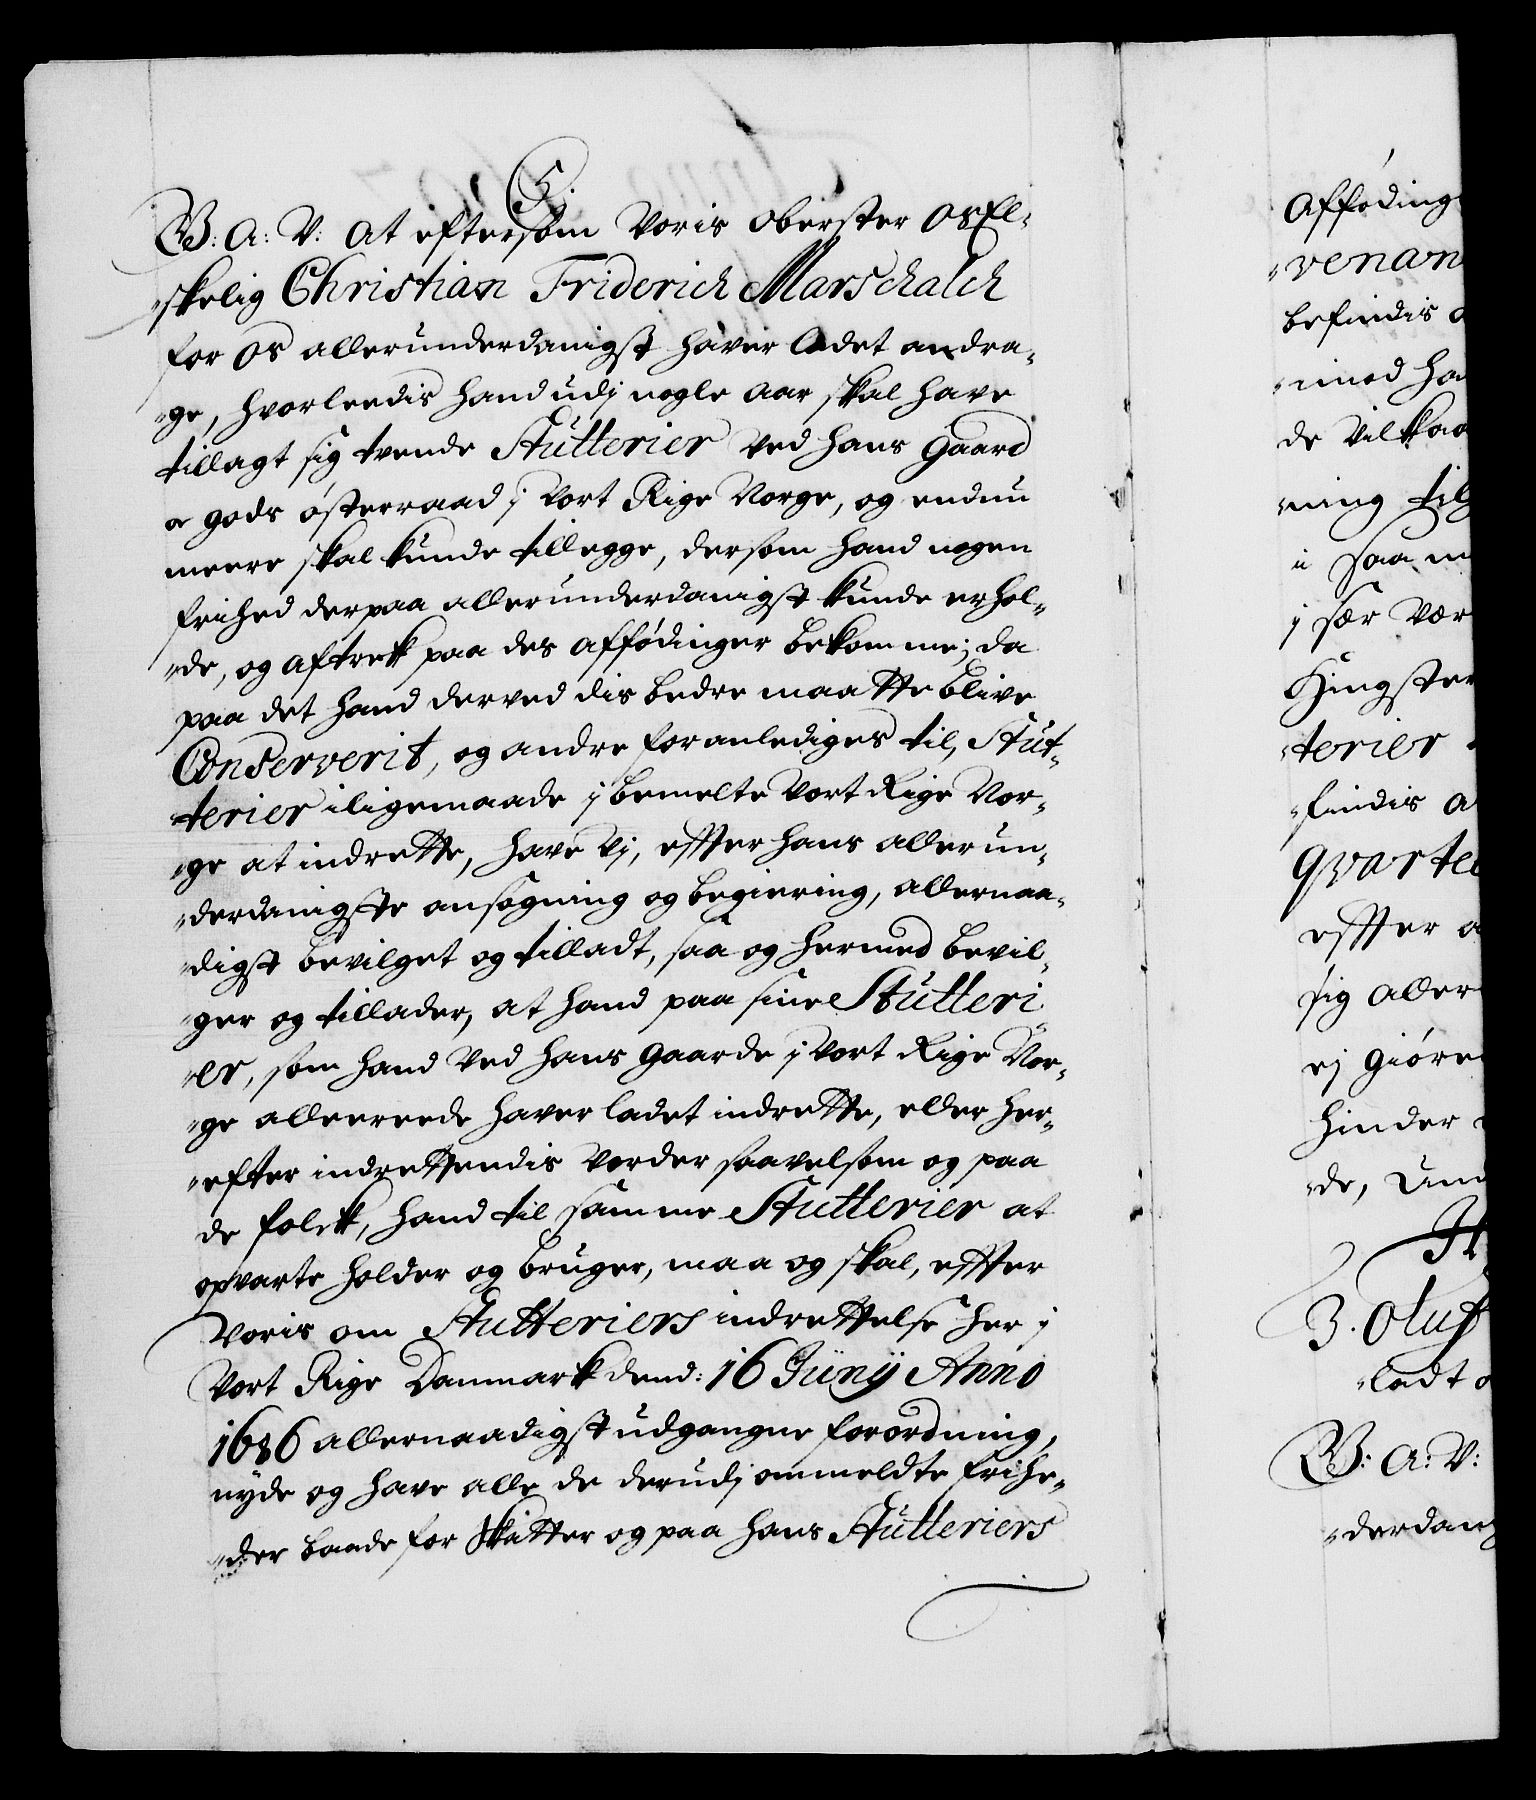 5.
G: A: V: At eftersom Voris Oberster OsEl-
-skelig Christian Friderich Marschalch
for Os allerunderdanigst haver ladet andra-
-ge, hvorleedis hand udj nogle Aar skal have
tillagt sig tvende Stutterier ved hans Gaard
og gods österraad j Vort Rige Norge, og endnu
meere skal kunde tillegge, dersom hand nogen
frihed derpaa allerunderdanigst kunde erhol-
-de, og aftrek paa des afföedinger bekomme; da
paa det hand derved dis bedre maatte blive
Conserverit, og andre foranlediges til, Stut-
terier iligemaade j bemelte Vort Rige Nor-
-ge at indrette, have Vj, effter hans allerun-
-derdanigste ansögning og begiering, allernaa-
-digst bevilget og tilladt, saa og hermed bevil-
-ger og tillader, at hand paa sine Stutteri
-er, som hand Ved hans Gaarde j Vort Rige Nor-
-ge allereede haver ladet indrette, eller her-
-efter indrettendis vorder saavelsom og paa
de folck, hand til samme Stutterier at
opvarte holder og bruger, maa og skal, effter
Voris om Stutteriers indrettelse her j
Vort Rige Danmark dend: 16 Junij Anno
1686 allernaadigst udgangne forordning,
nyde og have alle de derudj ommeldte frihe-
-der baade for Skatter og paa hans Stutteriers
Afföding
-venan
befindis
-imod ha
de Vilkaa
-ning til
i saa m
j sær Vær
Hingster
-terier
-findis a
qvartee
effter a
sig aller
ej giöre
hinder
-de, Und
3. Oluf
-ladt
G: A: V:
-derdan